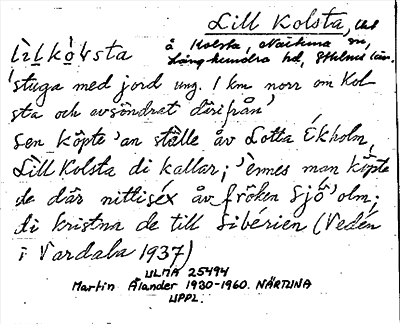 Lill Kolsta,
å Kolsta, Närtuna sn,
lìlkólsta Långhundra hd, Sthlms län.
'stuga med jord ung. 1 km norr om Kol-
sta och avsöndrat därifrån'
sen köpte 'an ställe åv Lotta Ékholm,
Lill Kolsta di kallar; 'ennes man köpte
de där nittiséx åv fröken Sjö'olm;
di kristna de till Sibérien (Vedén
i Vardala 1937)
ULMA 25494
Martin Ålander 1930-1960. NÄRTUNA
UPPL.